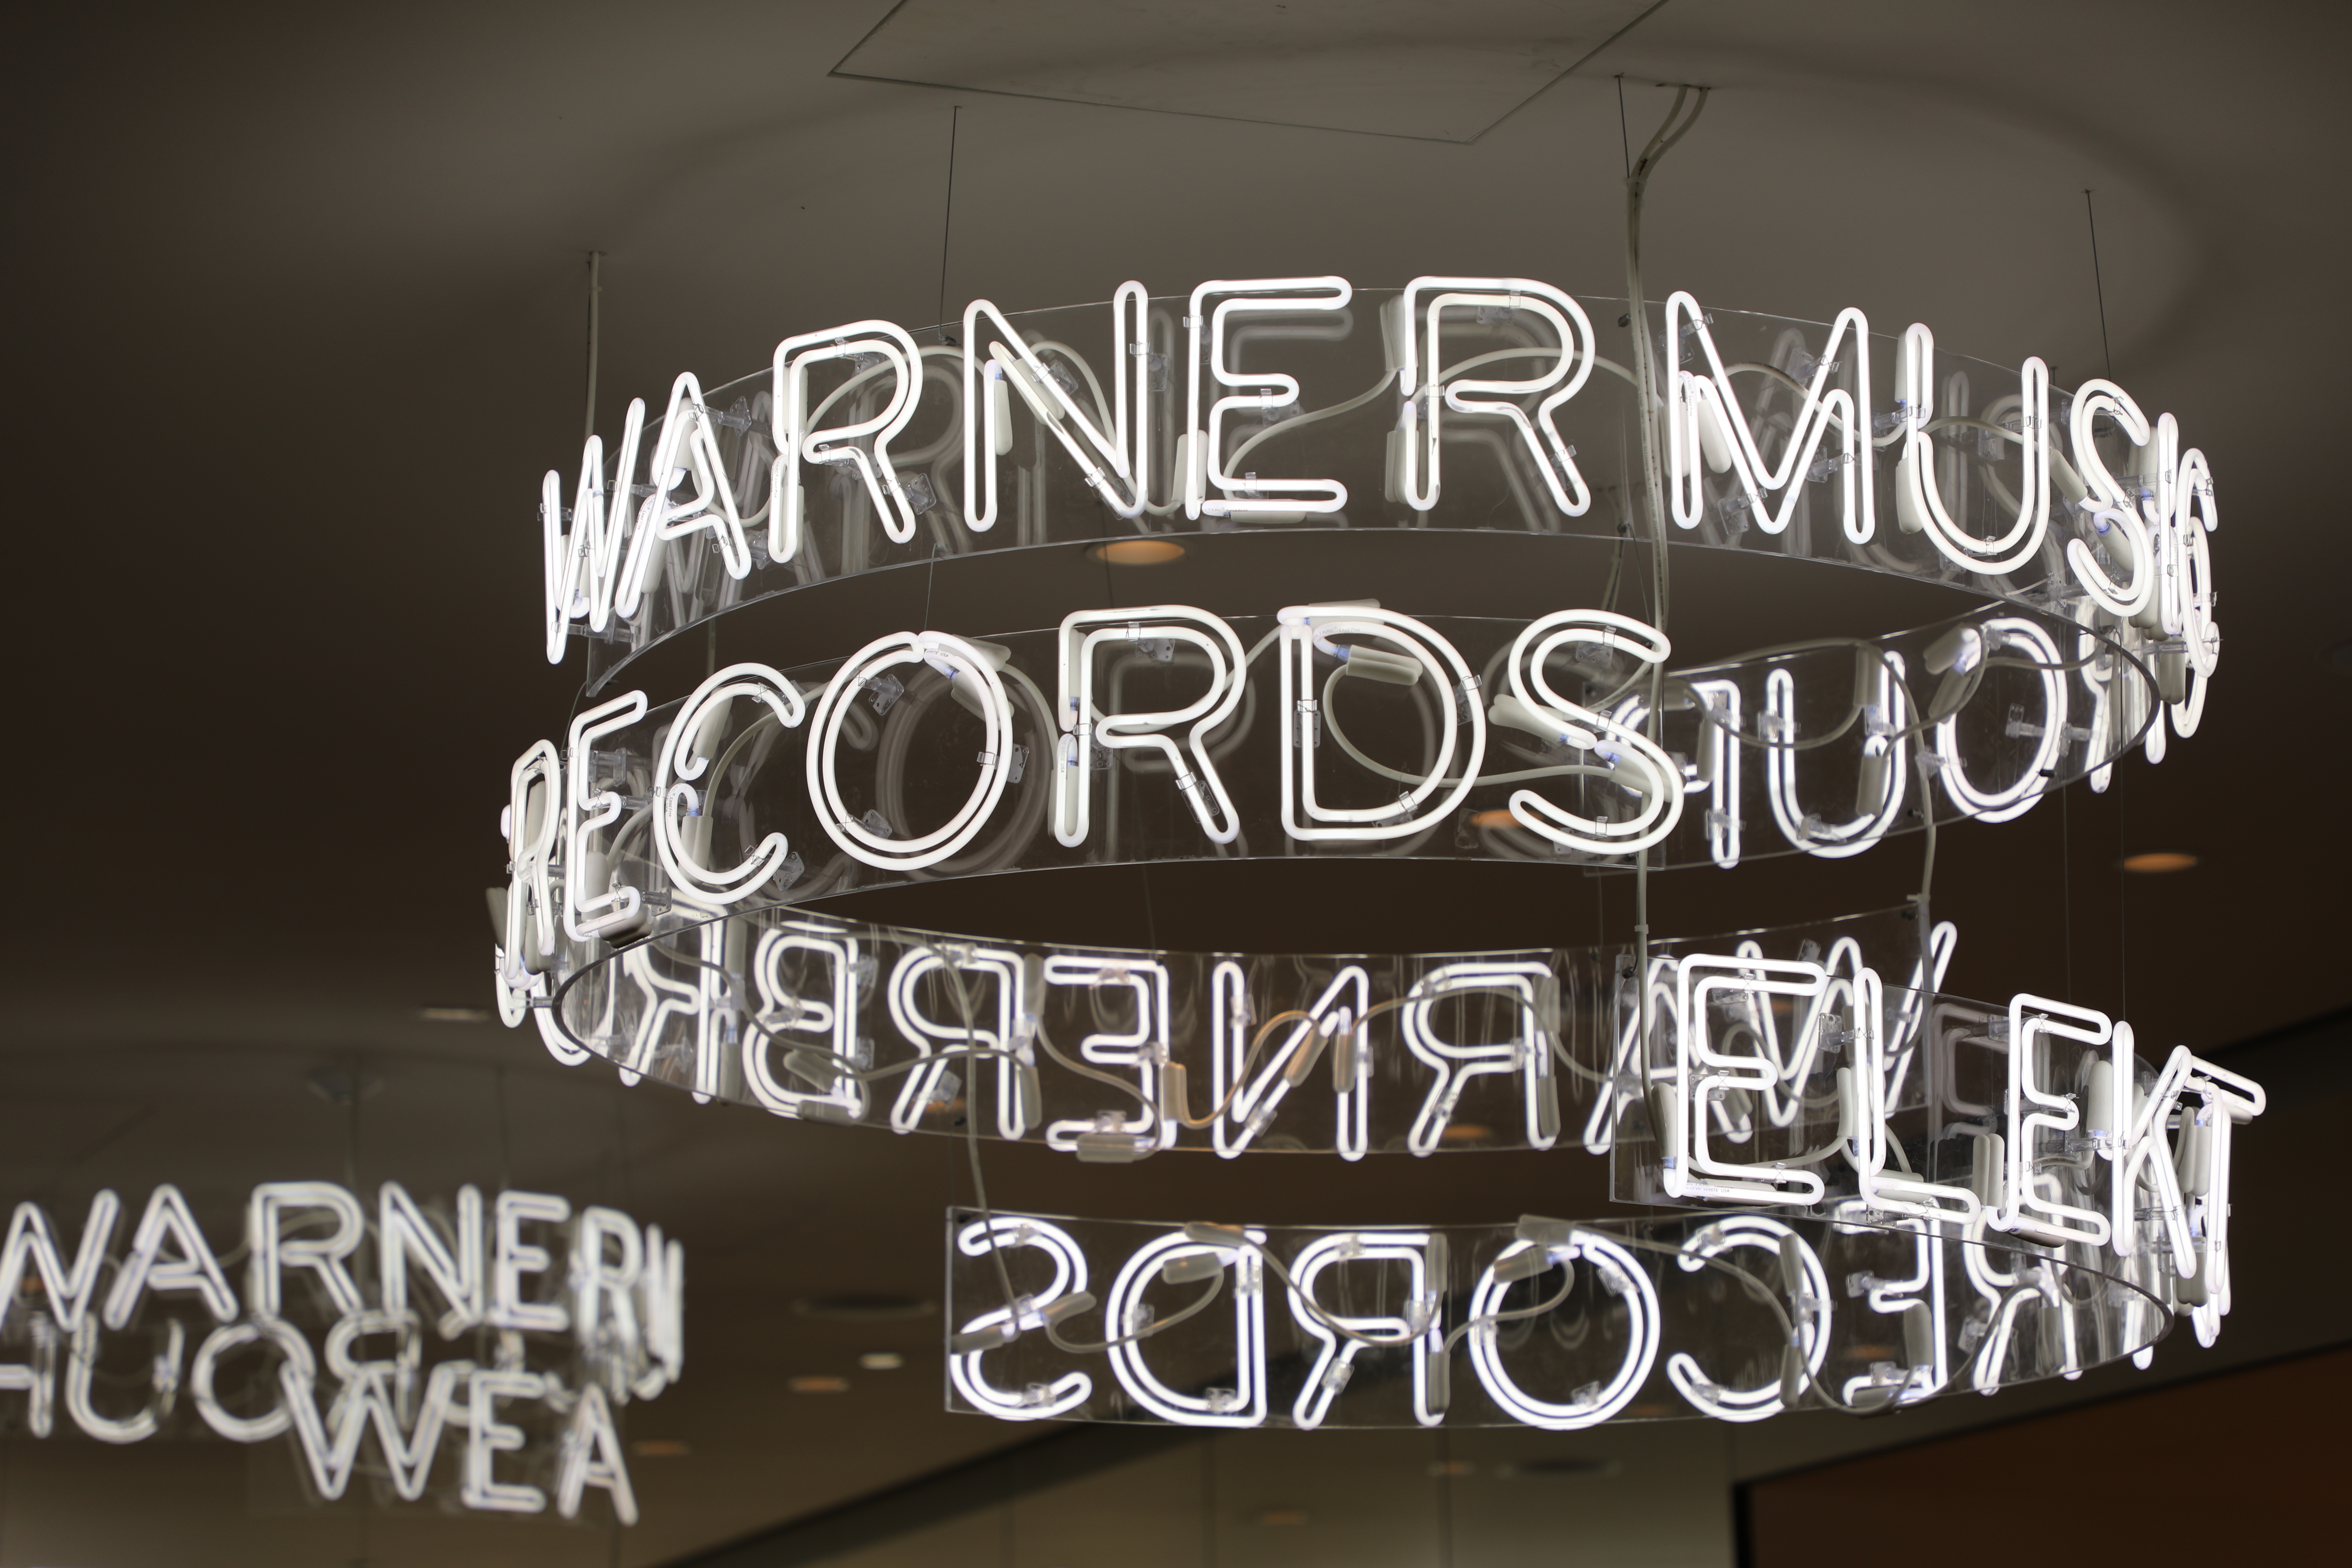 WARNER MUSIC
GROUP
RECORDS
WARNER BRO
ELEKT
RECORDS
WARNER
ROUP
WEA